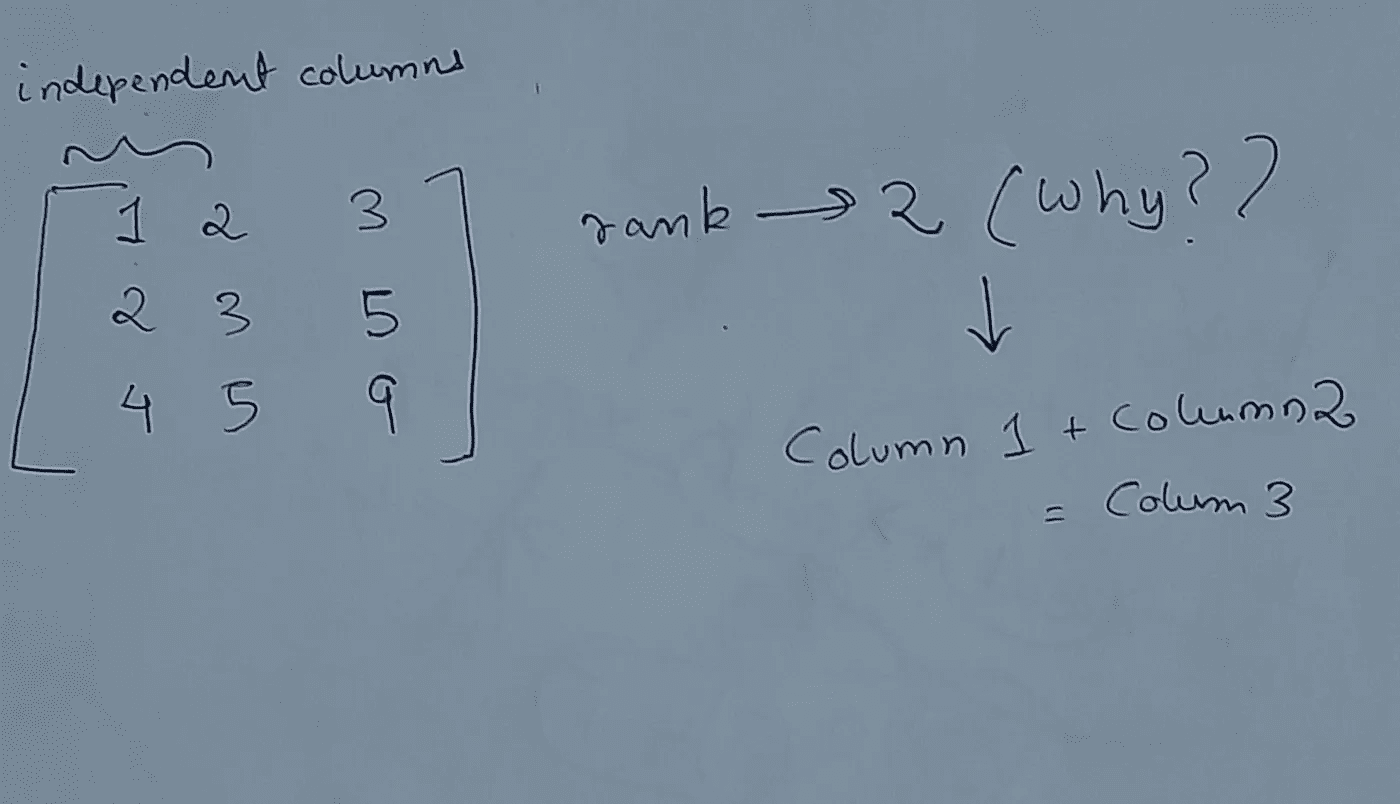 independent columns
1 2 3
2 3 5
4 5 9
rank → 2 (why??)
↓
Column 1 + Column 2
= Colum 3